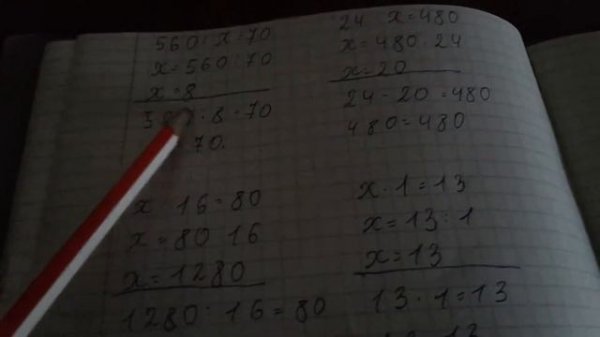 560 : x = 70
x = 560 : 70
x = 8
: 8 = 70
70.
24 x = 480
x = 480 : 24
x = 20
24 - 20 = 480
480 = 480
x 16 = 80
x = 80 16
x = 1280
1280 : 16 = 80
x · 1 = 13
x = 13 : 1
x = 13
13 · 1 = 13